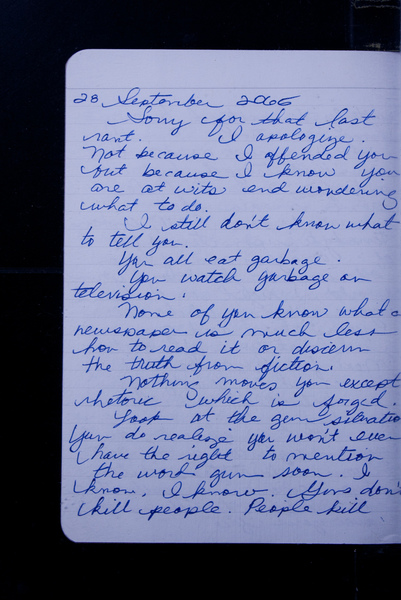 28 September 2006
Sorry for that last
rant. I apologize.
Not because I offended you
but because I know you
are at wits end wondering
what to do.
I still don't know what
to tell you.
You all eat garbage.
You watch garbage on
television.
None of you know what a
newspaper is much less
how to read it or discern
the truth from fiction.
Nothing moves you except
rhetoric which is forged.
Look at the gun situatio
You do realize you won't even
have the right to mention
the word gun soon. I
know, I know. Guns don't
kill people. People kill